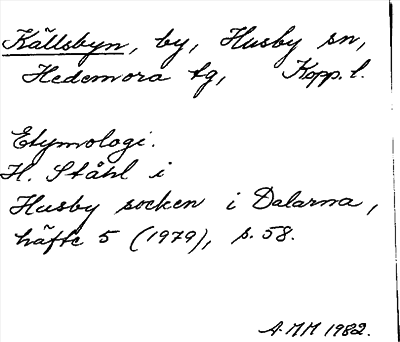 Källsbyn, by, Husby sn,
Hedemora tg, Kopp. l.
Etymologi.
H. Ståhl i
Husby socken i Dalarna,
häfte 5 (1979), s. 58.
A.MM 1982.